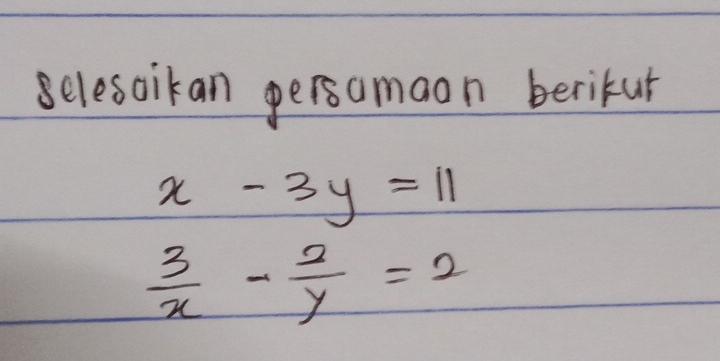 selesaikan persamaan berikut
x - 3y = 11
3/x - 2/y = 2